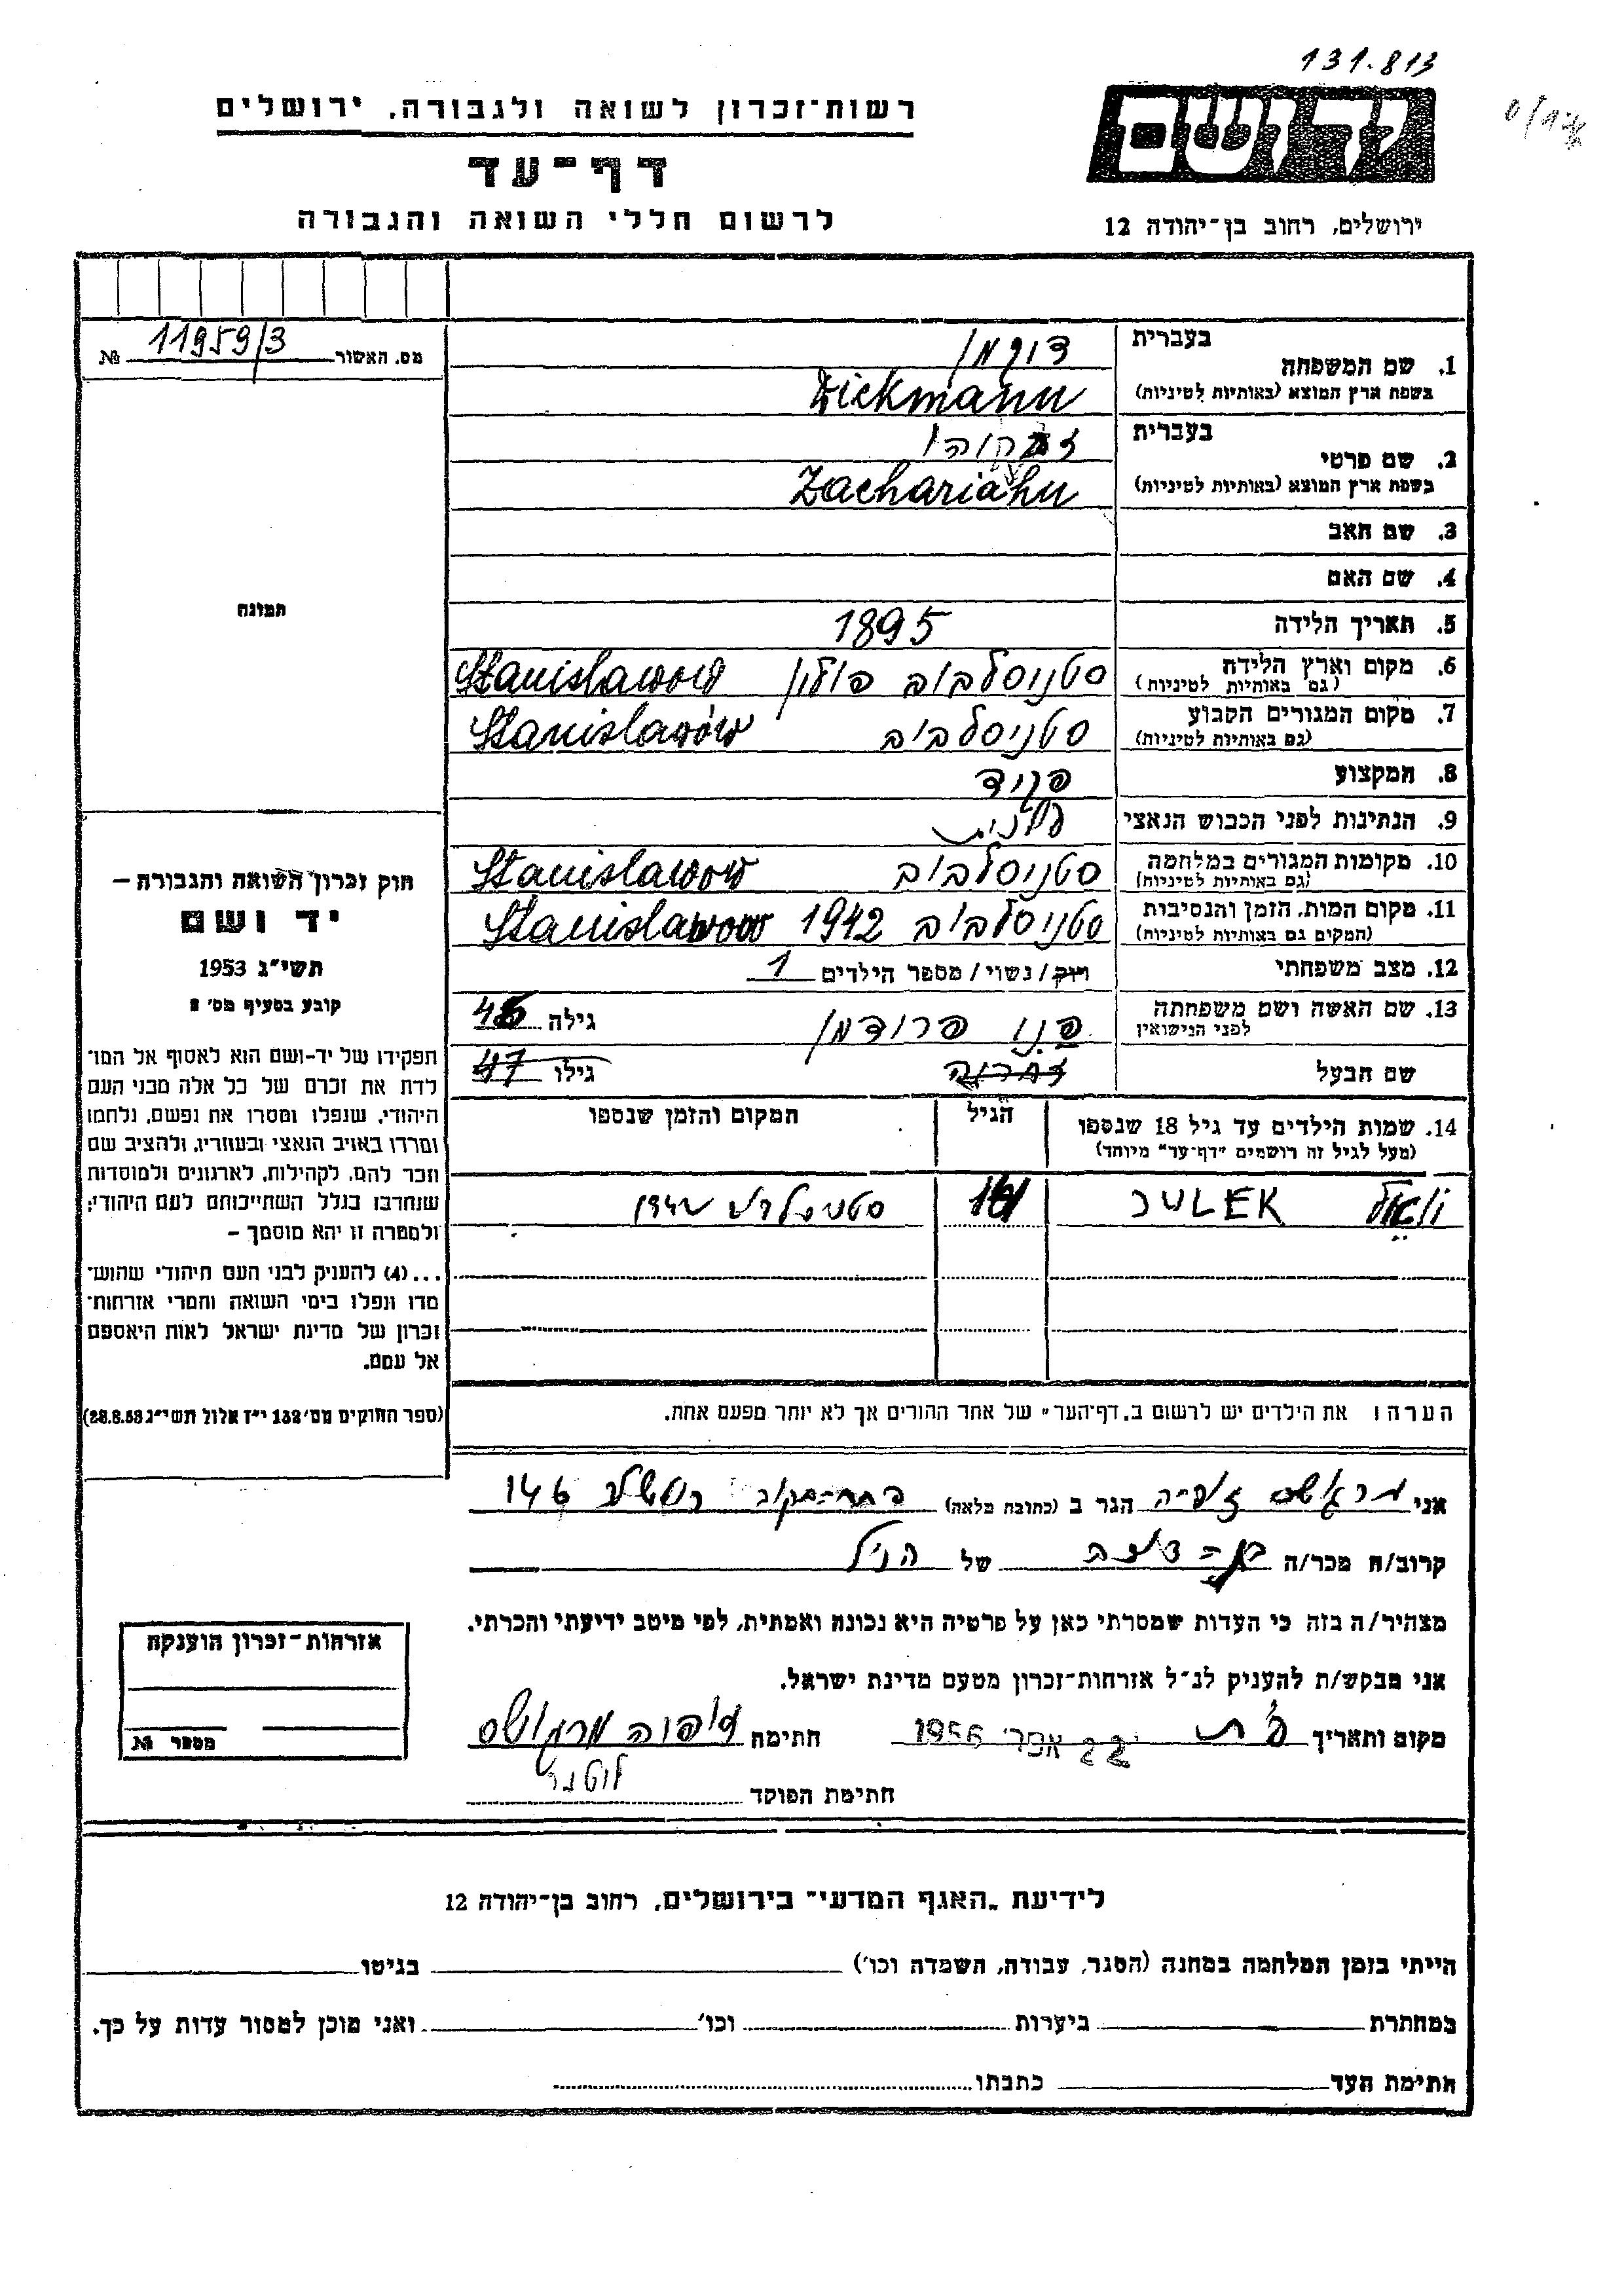 131.813
ידושם
רשות־זכרון לשואה ולגבורה, ירושלים
דף־עד
לרשום חללי השואה והגבורה
ירושלים, רחוב בן־יהודה 12
מס. האשור 11959/3 №
בעברית
1. שם המשפחה דיקמן
בשפת ארץ המוצא (באותיות לטיניות) Dickmann
בעברית
2. שם פרטי
בשפת ארץ המוצא (באותיות לטיניות) Zachariahu
3. שם האב
4. שם האם
תמונה
5. תאריך הלידה 1895
6. מקום וארץ הלידה סטניסלבוב פולין Stanislawow
(גם באותיות לטיניות)
7. מקום המגורים הקבוע סטניסלבוב Stanislawów
(גם באותיות לטיניות)
8. המקצוע פקיד
9. הנתינות לפני הכבוש הנאצי
10. מקומות המגורים במלחמה סטניסלבוב Stanislawow
(גם באותיות לטיניות)
11. מקום המות, הזמן והנסיבות סטניסלבוב 1942 Stanislawow
(המקום גם באותיות לטיניות)
12. מצב משפחתי רוק/נשוי/מספר הילדים 1
13. שם האשה ושם משפחתה פני פרודמן גילה
לפני הנישואין
שם הבעל זכריה גילו 47
14. שמות הילדים עד גיל 18 שנספו הגיל המקום והזמן שנספו
(מעל לגיל זה רושמים "דף־עד" מיוחד)
JULEK 1942
חוק זכרון השואה והגבורה –
יד ושם
תשי"ג 1953
קובע בסעיף מס' 2
תפקידו של יד-ושם הוא לאסוף אל המו־
לדת את זכרם של כל אלה מבני העם
היהודי, שנפלו ומסרו את נפשם, נלחמו
ומרדו באויב הנאצי ובעוזריו, ולהציב שם
וזכר להם, לקהילות, לארגונים ולמוסדות
שנחרבו בגלל השתייכותם לעם היהודי;
ולמטרה זו יהא מוסמך –
...(4) להעניק לבני העם היהודי שהוש־
מדו ונפלו בימי השואה והמרי אזרחות־
זכרון של מדינת ישראל לאות היאספם
אל עמם.
(ספר החוקים מס' 132 י"ז אלול תשי"ג 28.8.53)
הערה: את הילדים יש לרשום ב„דף־העד" של אחד ההורים אך לא יותר מפעם אחת.
אני הגר ב (כתובת מלאה) 146
קרוב/ה מכר/ה של הנ"ל
מצהיר/ה בזה כי העדות שמסרתי כאן על פרטיה היא נכונה ואמתית, לפי מיטב ידיעתי והכרתי.
אני מבקש/ת להעניק לנ"ל אזרחות־זכרון מטעם מדינת ישראל.
מקום ותאריך פ"ת 22 אפר' 1956 חתימה
חתימת הפוקד
אזרחות־זכרון הוענקה
מספר №
לידיעת „האגף המדעי" בירושלים, רחוב בן־יהודה 12
הייתי בזמן המלחמה במחנה (הסגר, עבודה, השמדה וכו') בגיטו
במחתרת ביערות וכו' ואני מוכן למסור עדות על כך.
חתימת העד כתבתו